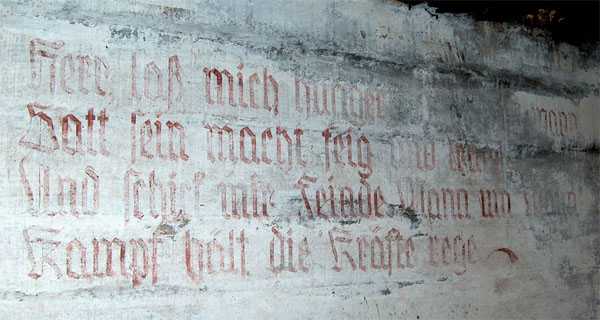 Herr, laß mich hunger wann
Satt sein macht feig und
Und schick mir Feinde, Mann um Mann
Kampf hält die Kräfte rege